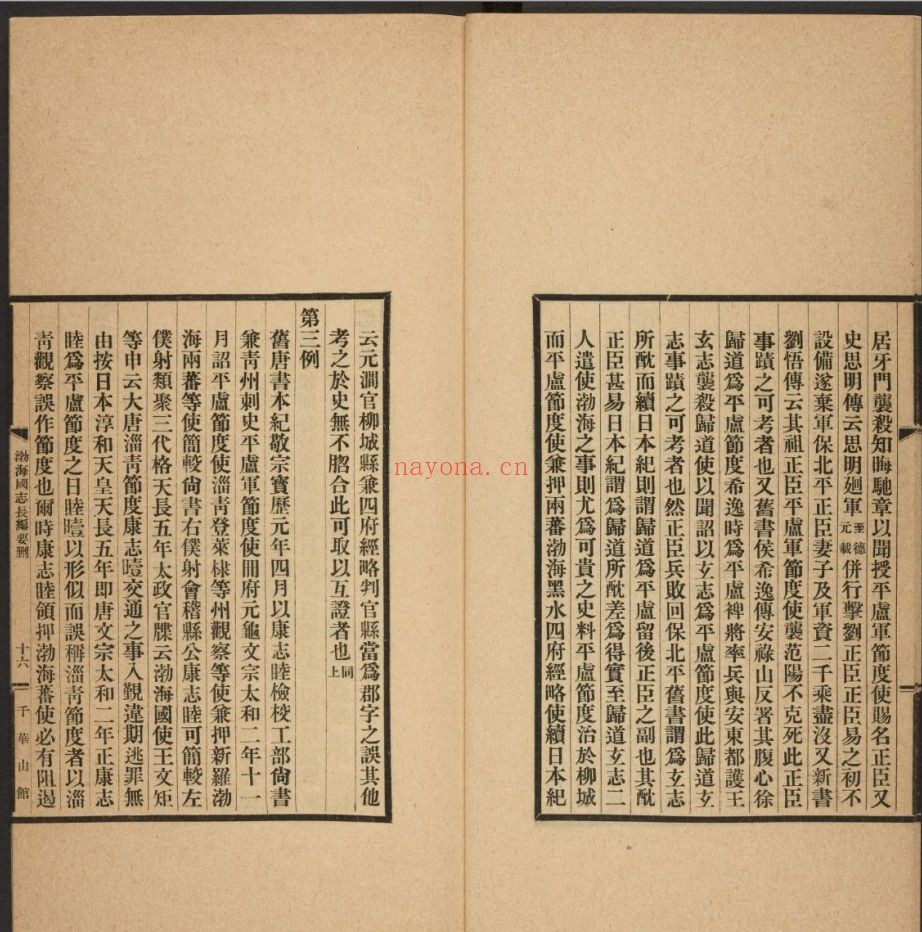 居牙門襲殺知晦馳章以聞授平盧軍節度使賜名正臣又
史思明傳云思明廻軍至德元載併行擊劉正臣正臣易之初不
設備遂棄軍保北平正臣妻子及軍資二千乘盡沒又新書
劉悟傳云其祖正臣平盧軍節度使襲范陽不克死此正臣
事蹟之可考者也又舊書侯希逸傳安祿山反署其腹心徐
歸道爲平盧節度希逸時爲平盧裨將率兵與安東都護王
玄志襲殺歸道使以聞詔以玄志爲平盧節度使此歸道玄
志事蹟之可考者也然正臣兵敗回保北平舊書謂爲玄志
所酖而續日本紀則謂歸道爲平盧留後正臣之副也其酖
正臣甚易日本紀謂爲歸道所酖差爲得實至歸道玄志二
人遣使渤海之事則尤爲可貴之史料平盧節度治於柳城
而平盧節度使兼押兩蕃渤海黑水四府經略使續日本紀
云元澗官柳城縣兼四府經略判官縣當爲郡字之誤其他
考之於史無不脗合此可取以互證者也同上
第三例
舊唐書本紀敬宗寶歷元年四月以康志睦檢校工部尙書
兼靑州刺史平盧軍節度使册府元龜文宗太和二年十一
月詔平盧節度使淄靑登萊棣等州觀察等使兼押新羅渤
海兩蕃等使簡較尙書右僕射會稽縣公康志睦可簡較左
僕射類聚三代格天長五年太政官牒云渤海國使王文矩
等申云大唐淄靑節度康志曀交通之事入覲違期逃罪無
由按日本淳和天皇天長五年卽唐文宗太和二年正康志
睦爲平盧節度之日睦曀以形似而誤稱淄靑節度者以淄
靑觀察誤作節度也爾時康志睦領押渤海蕃使必有阻遏
渤海國志長編要刪
十六
千華山館
nayona.cn